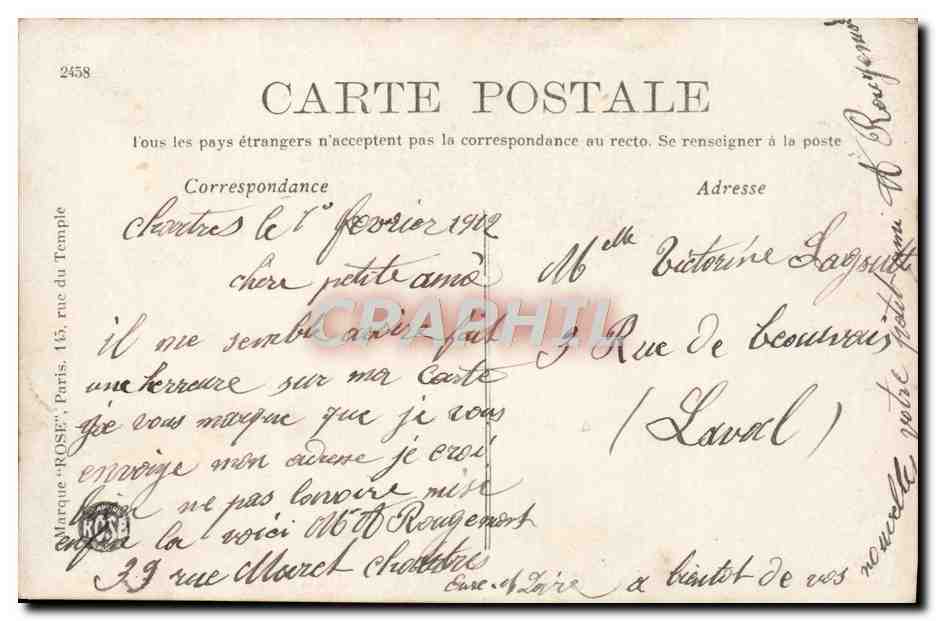 2458
CARTE POSTALE
Tous les pays étrangers n'acceptent pas la correspondance au recto. Se renseigner à la poste
Correspondance
Adresse
Marque "ROSE", Paris, 145, rue du Temple
ROSE
Chartres le 1° fevrier 1912
chere petite amè
il me semble avoir fait
une herreure sur ma carte
je vous marque que je vous
envoige mon adresse je croi
bien ne pas lavoire mise
enfin la voici Mr A Rougemont
39 rue Muret chartres
Eure et Loire a bientot de vos
nouvelles votre petit ami A Rougemont
Melle Victorine Lagoutt
3 Rue de Beauvais
(Laval)
CRAPHIL